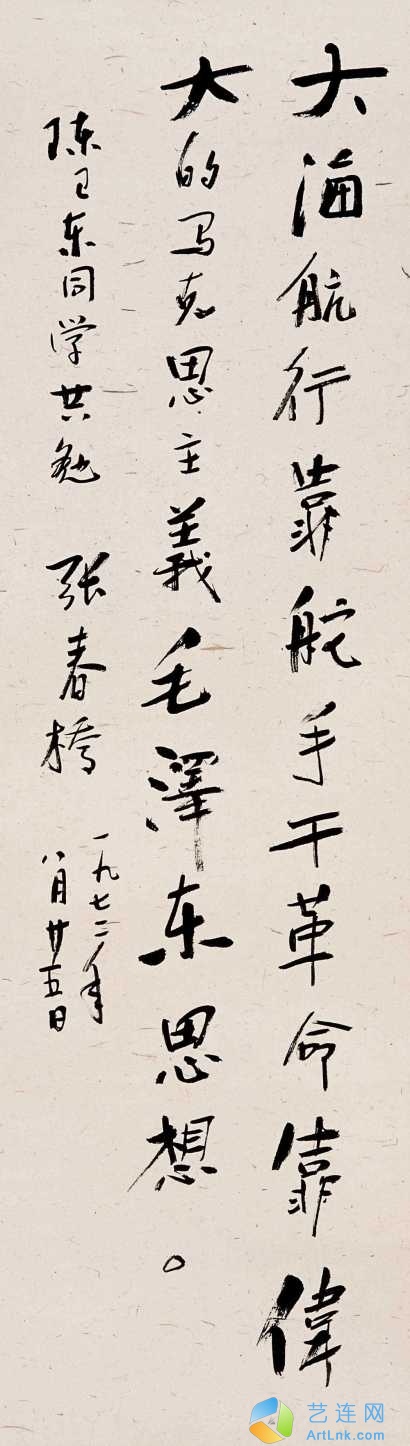 大海航行靠舵手干革命靠偉
大的马克思主義毛澤东思想。
陈卫东同学共勉 张春橋
一九七二年
八月廿五日
艺连网
ArtLnk.com